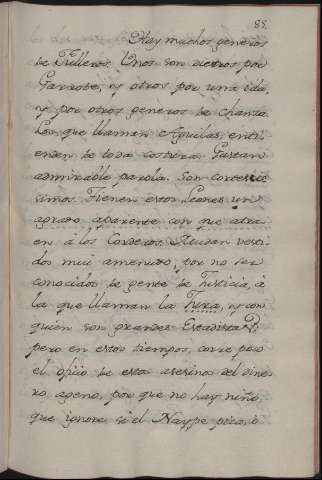 85.
Hay muchos generos
de Fulleros. Unos son diestros por
Garrote, y otros por una ida,
y por otros generos de chanza.
Los que llaman Aguilas, enti-
enden de toda costura. Gastan
admirable parola. Son cortesis-
simos. Tienen estos Leones un
agrado aparente con que atra-
en á los Corderos. Mudan vesti-
dos mui amenudo, por no ser
conocidos de gente de Justicia, à
la que llaman la Gura, y con
quien son grandes Estadistas;
pero en estos tiempos, corre poco
el oficio de estos asesinos del dine-
ro ageno, por que no hay niño,
que ignore si el Naype pica, ó